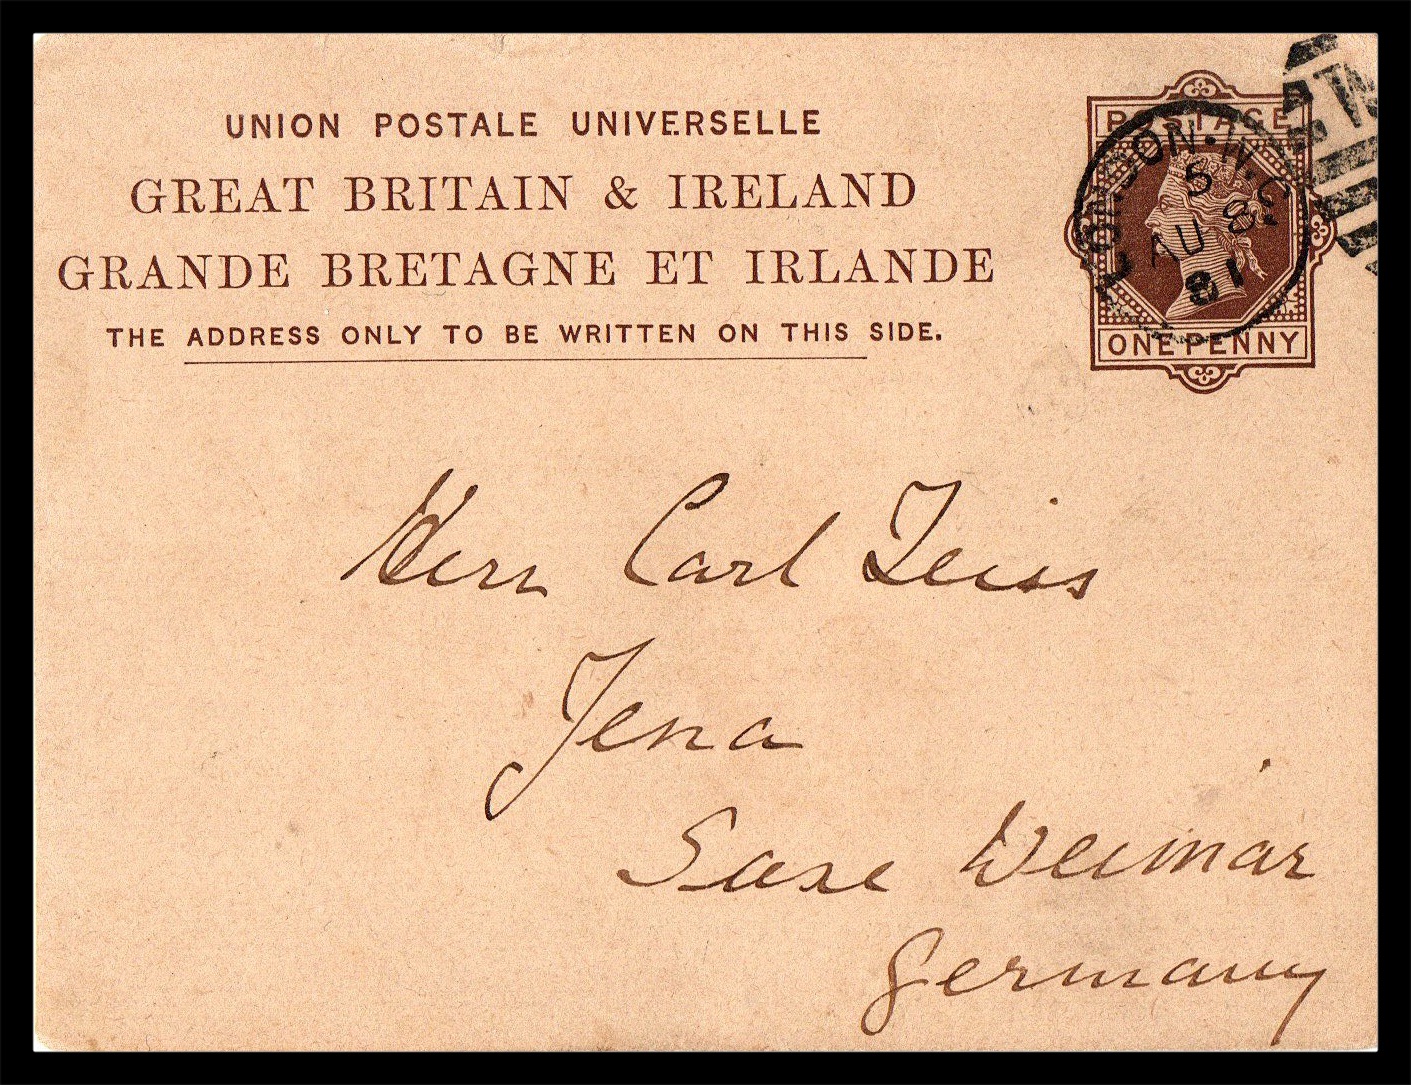 UNION POSTALE UNIVERSELLE
GREAT BRITAIN & IRELAND
GRANDE BRETAGNE ET IRLANDE
THE ADDRESS ONLY TO BE WRITTEN ON THIS SIDE.
POSTAGE
ONE PENNY
LONDON·W.C
5
AU 8
81
Herr Carl Zeiss
Jena
Saxe Weimar
Germany